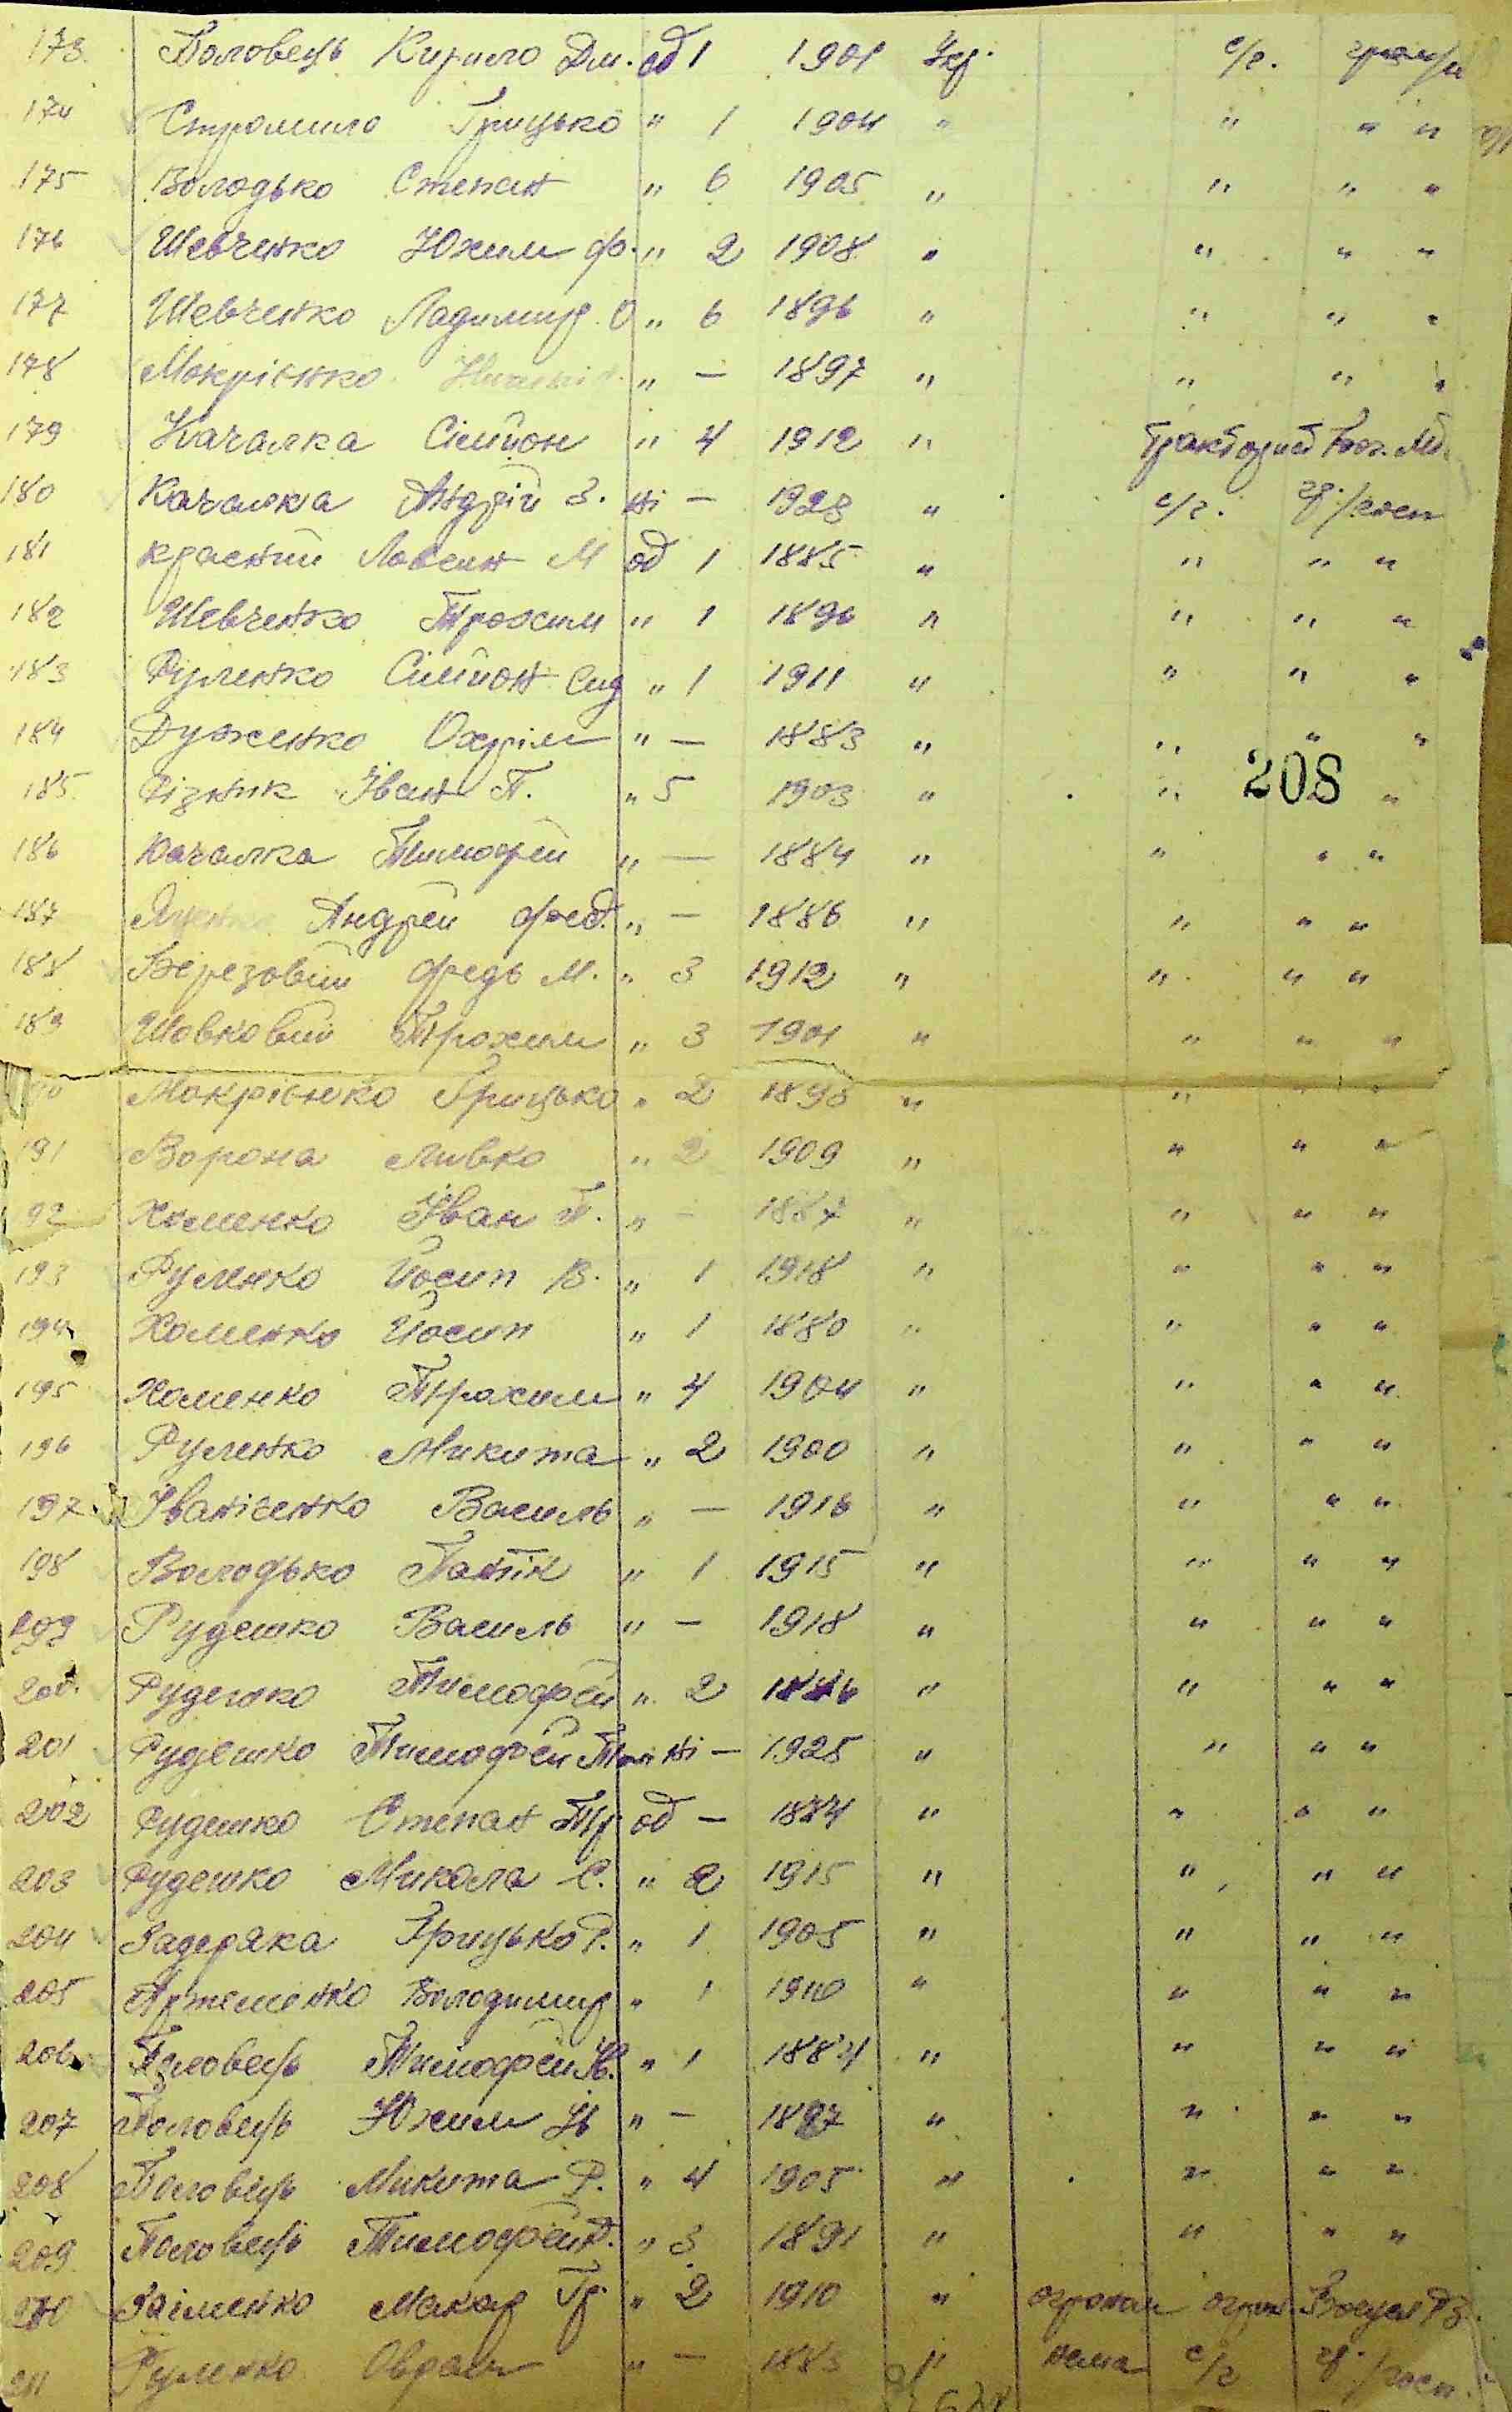 173. Половець Кирило Дм. од 1 1901 Укр. с/г.
174 Стромило Грицько " 1 1904 " " " "
175 Володько Степан " 6 1905 " " " "
176 Шевченко Юхим Ф. " 2 1908 " " " "
177 Шевченко Ладимир О " 6 1896 " " " "
178 Мокрієнко " — 1897 " " " "
179 Качалка Сімйон " 4 1912 "
180 Качалка Андрій З. ні — 1928 " с/г. гр./госп
181 Красний Лавсин М од 1 1885 " " " "
182 Шевченко Трохим " 1 1896 " " " "
183 Руленко Сімйон Сид " 1 1911 " " " "
184 Дуженко Охрім " — 1883 " " " "
185 Різник Іван П. " 5 1903 " " "
208
186 Качалка Тимофей " — 1884 " " " "
187 Андрей Фед. " — 1886 " " " "
188 Березовий Федь М. " 3 1912 " " " "
189 Шовковий Трохим " 3 1901 " " " "
90 Мокрієнко Грицько " 2 " " " "
191 Ворона Ливко " 2 1909 " " " "
92 Хоменко Іван П. " - 1887 " " " "
193 Руленко Йосип В. " 1 1918 " " " "
194 Хоменко Йосип " 1 1880 " " " "
195 Хоменко Трохим " 4 1904 " " " "
196 Руленко Микита " 2 1900 " " " "
197 Іванісенко Василь " — 1916 " " " "
198 Володько Панік " 1 1915 " " " "
199 Рудешко Василь " — 1918 " " " "
200. Рудешко Тимофей " 2 " " " "
201 Рудешко Тимофей ні — 1925 " " " "
202 Рудешко Степан Тр од — " " " "
203 Рудешко Микола С. " 2 1915 " " " "
204 Задеряка Грицько Р. " 1 1905 " " " "
205 Артеменко Володимир " 1 1910 " " " "
206 Половець Тимофей " 1 1884 " " " "
207 Половець Юхим Ів " — " " " "
208 Половець Микита Р. " 4 1905 " " " "
209 Половець Тимофей " 3 1891 " " " "
210 Макар Гр. " 2 1910 " огроном
211 Руленко Оврам " — 1883 " нема с/г гр./госп.